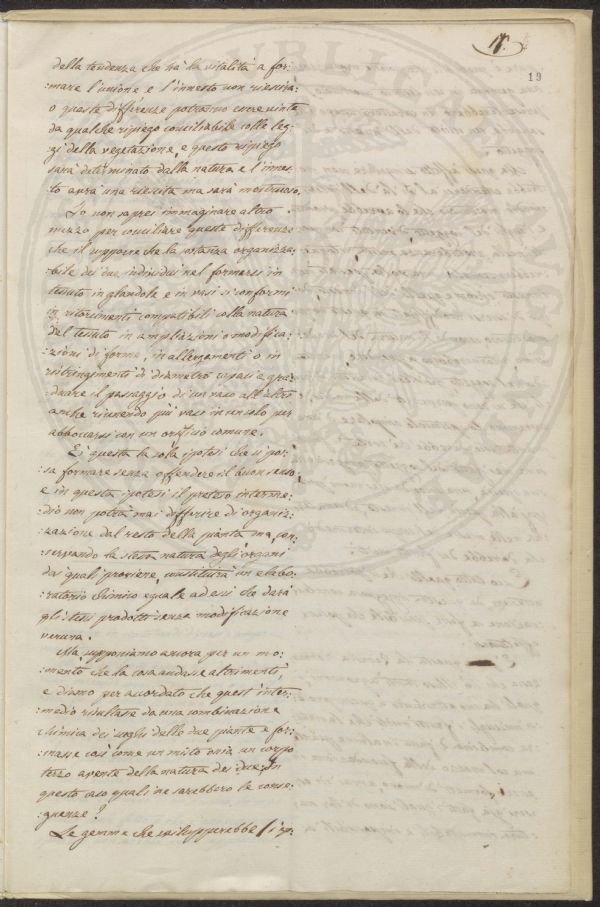 17.
19
della tendenza che hà la vitalità a for:
:mare l'unione, e l'innesto non riescirà:
o queste differenze potranno essere vinte
da qualche ripiego conciliabile colle leg:
:gi della vegetazione, e questo ripiego
sarà determinato dalla natura e l'innes:
:to avrà una riescita ma sarà mostruoso.
Io non saprei immaginare altro
mezzo per conciliare queste differenze
che il supporre che la sostanza organizza:
:bile dei due individui nel formarsi in
tessuto in glandole e in vasi si conformi
in ritorcimenti compatibili colla natura
del tessuto in ampliazioni o modifica:
:zioni di forme, in allargamenti o in
ristringimenti di diametro capaci a gra:
:duare il passaggio di un vaso all'altro
anche riunendo più vasi in un solo per
abboccarsi con un orificio comune.
Ei questa la sola ipotesi che si pos:
:sa formare senza offendere il buon senso,
e in questa ipotesi il preteso interme:
:dio non potrà mai differire di organiz:
:zazione dal resto della pianta, ma, con:
:servando la stessa natura degli organi
dai quali proviene, costituirà un elabo:
:ratorio chimico eguale ad essi che darà
gli stessi prodotti senza modificazione
veruna.
Ma supponiamo ancora per un mo:
:mento, che la cosa andasse altrimenti,
e diamo per accordato che quest'inter:
:medio risultasse da una combinazione
chimica dei sughi delle due piante e for:
:masse così come un misto ossia un corpo
terzo avente della natura dei due; In
questo caso quali ne sarebbero le conse:
:guenze?
Le gemme che svilupperebbe